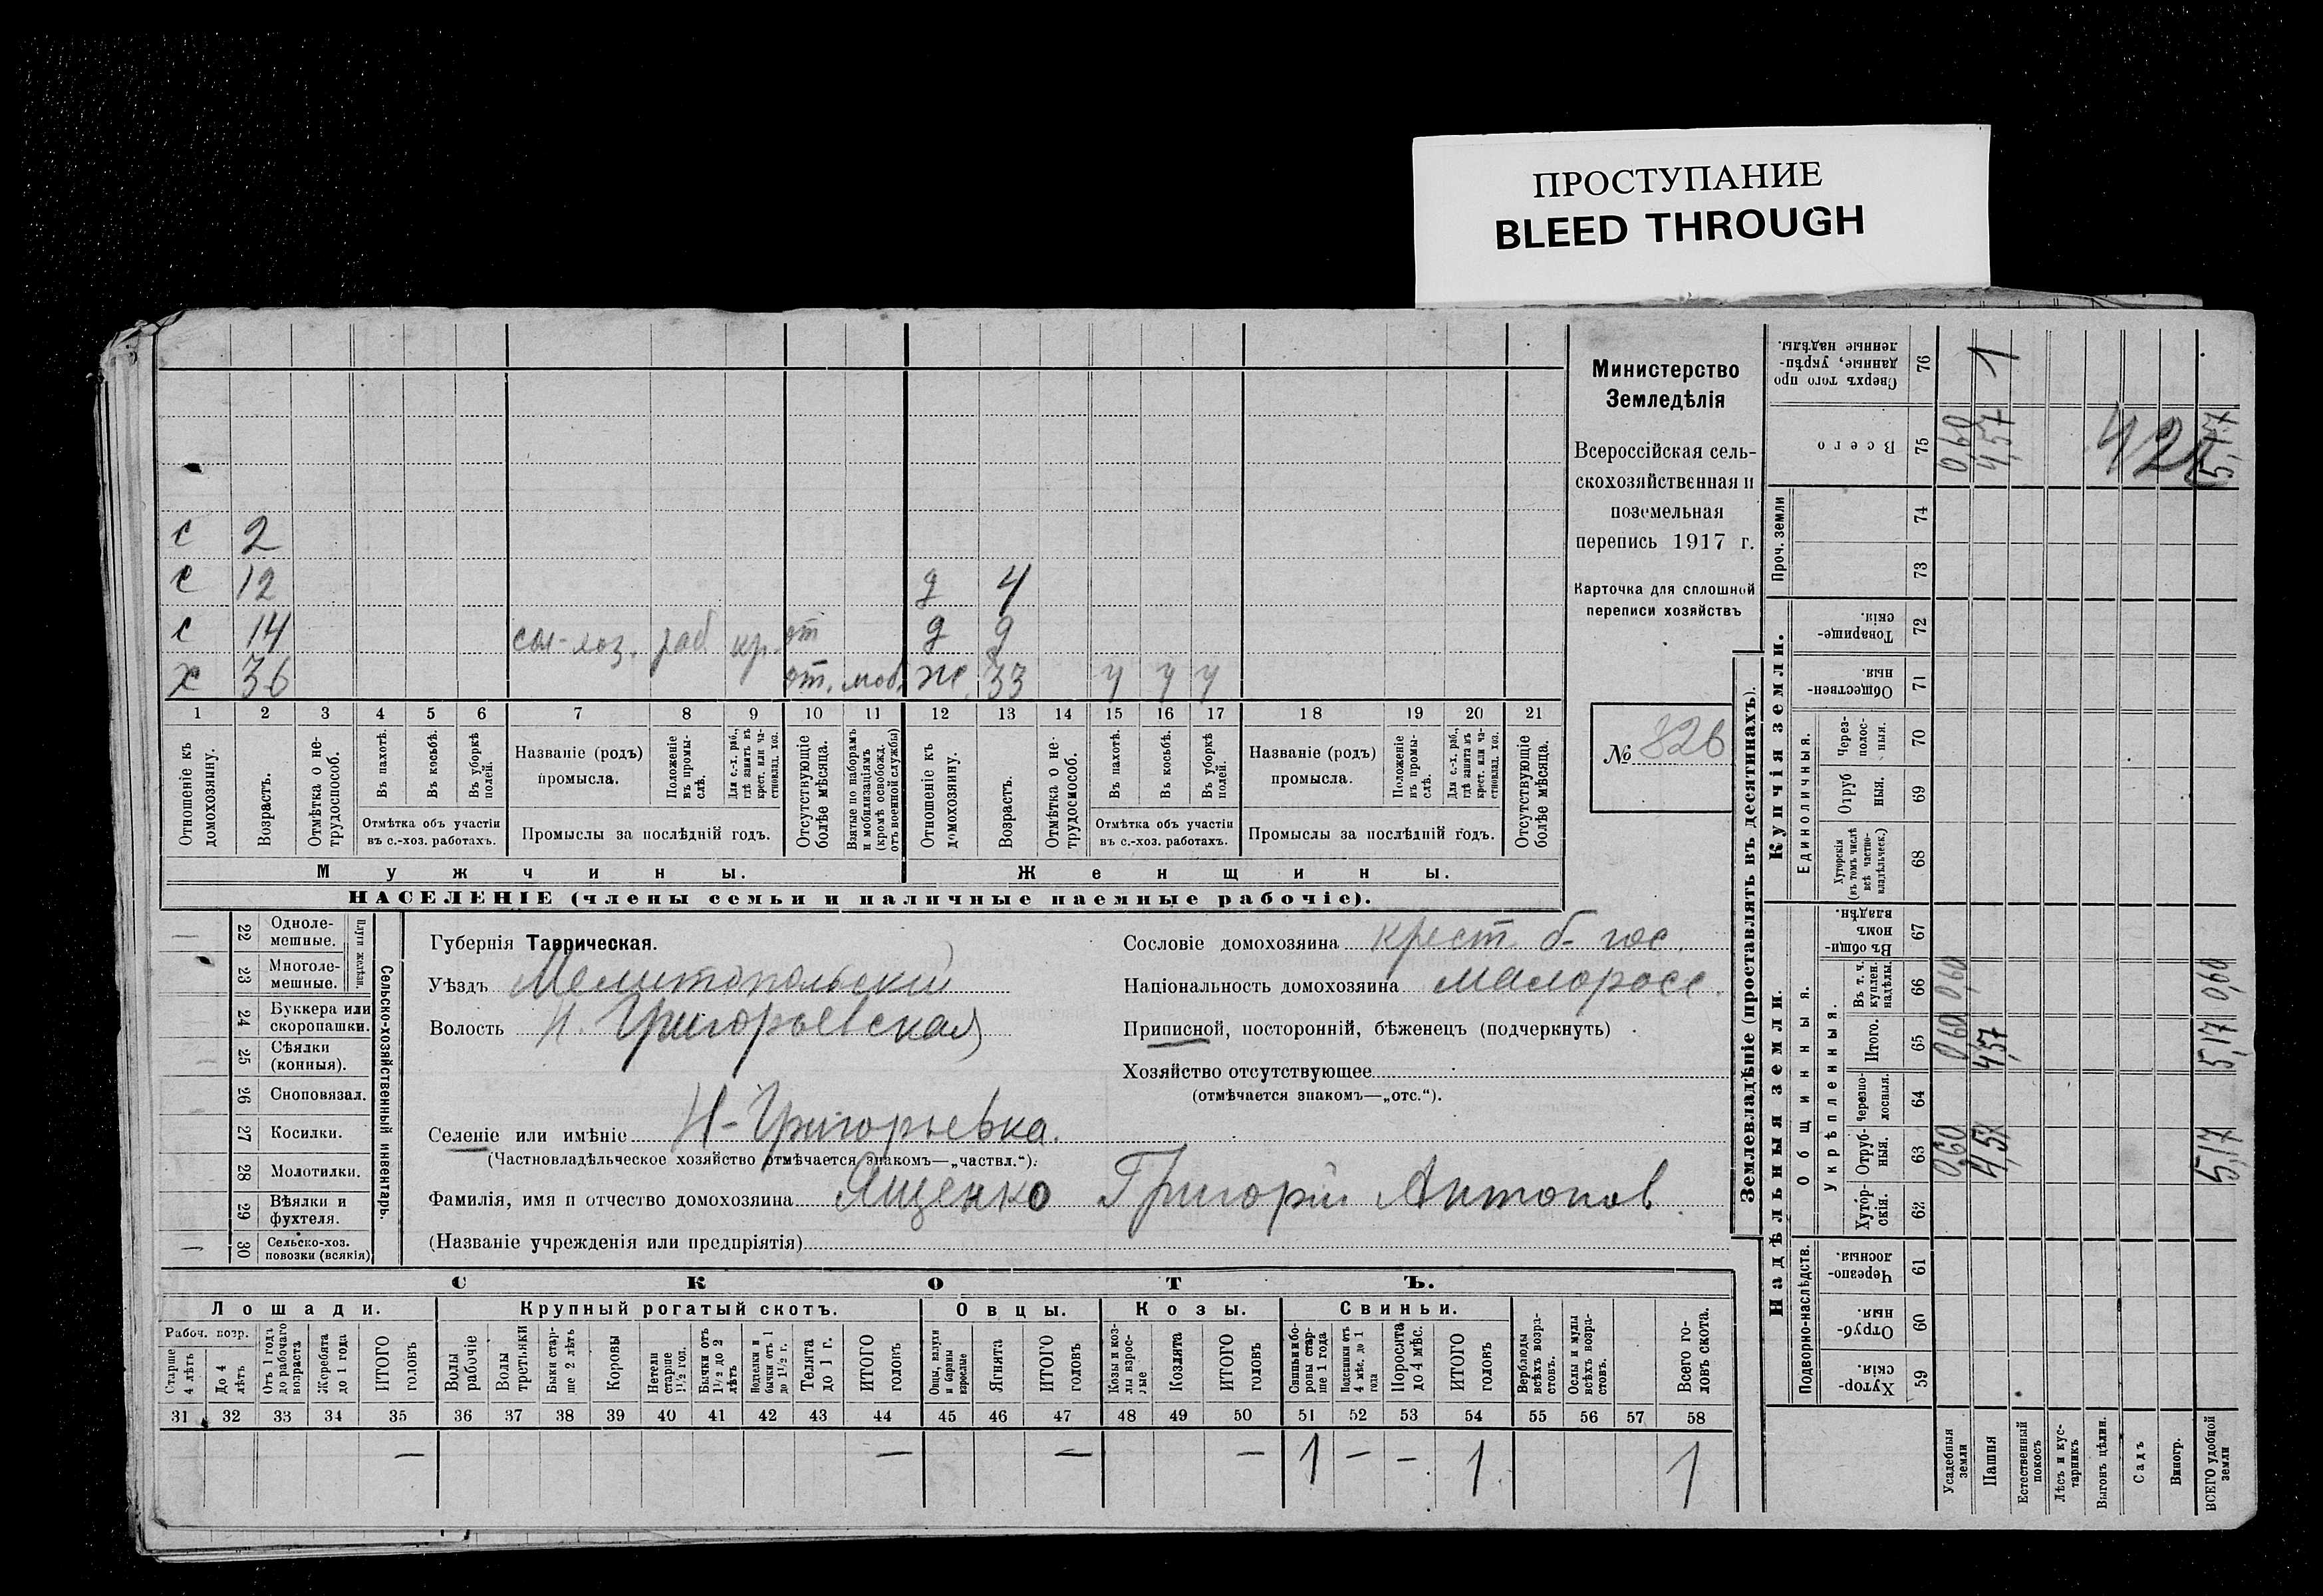 ПРОСТУПАНИЕ
BLEED THROUGH
с 2
с 12 д 4
с 14 сел-хоз. раб кр. от д 9
х 36 от. моб. ж. 33 у у у
1 2 3 4 5 6 7 8 9 10 11 12 13 14 15 16 17 18 19 20 21
Отношеніе къ домохозяину.
Возрастъ.
Отмѣтка о нетрудоспособ.
Въ пахотѣ.
Въ косьбѣ.
Въ уборкѣ полей.
Отмѣтка объ участіи
въ с.-хоз. работахъ.
Названіе (родъ)
промысла.
Положеніе въ промыслѣ.
Для с.-х. раб., гдѣ занятъ въ крест. или частновлад. хоз.
Промыслы за послѣдній годъ.
Отсутствующіе болѣе мѣсяца.
Взятые по наборамъ и мобилизаціямъ (кромѣ освобожд. отъ военной службы)
Отношеніе къ домохозяину.
Возрастъ.
Отмѣтка о нетрудоспособ.
Въ пахотѣ.
Въ косьбѣ.
Въ уборкѣ полей.
Отмѣтка объ участіи
въ с.-хоз. работахъ.
Названіе (родъ)
промысла.
Положеніе въ промыслѣ.
Для с.-х. раб., гдѣ занята въ крест. или частновлад. хоз.
Промыслы за послѣдній годъ.
Отсутствующіе болѣе мѣсяца.
Мужчины. Женщины.
НАСЕЛЕНІЕ (члены семьи и наличные наемные рабочіе).
Министерство
Земледѣлія
Всероссійская сель-
скохозяйственная и
поземельная
перепись 1917 г.
Карточка для сплошной
переписи хозяйствъ
№ 826
Сельско-хозяйственный инвентарь.
Плуги желѣзн.
— 22 Одноле-
мешные.
23 Многоле-
мешные.
24 Буккера или
скоропашки.
25 Сѣялки
(конныя).
26 Сноповязал.
27 Косилки.
28 Молотилки.
29 Вѣялки и
фухтеля.
— 30 Сельско-хоз.
повозки (всякія)
Губернія Таврическая.
Уѣздъ Мелитопольскій
Волость Н. Григорьевская
Селеніе или имѣніе Н-Григорьевка.
(Частновладѣльческое хозяйство отмѣчается знакомъ—„частвл.“).
Фамилія, имя и отчество домохозяина Ященко Григорій Антонов
(Названіе учрежденія или предпріятія)
Сословіе домохозяина крест. б- гос.
Національность домохозяина малоросс.
Приписной, посторонній, бѣженецъ (подчеркнуть)
Хозяйство отсутствующее
(отмѣчается знакомъ—„отс.“).
СКОТЪ.
Лошади. Крупный рогатый скотъ. Овцы. Козы. Свиньи.
Рабоч. возр.
Старше 4 лѣтъ
До 4 лѣтъ
Отъ 1 года до рабочаго возраста
Жеребята до 1 года
ИТОГО головъ
Волы рабочіе
Волы третьяки
Быки старше 2 лѣтъ
Коровы
Нетели старше 1½ год.
Бычки отъ 1½ до 2 лѣтъ
Телята до 1 г.
ИТОГО головъ
Овцы, валухи и бараны взрослые
Ягнята
ИТОГО головъ
Козы и козлы взрослые
Козлята
ИТОГО головъ
Свиньи и боровы старше 1 года
Подсвинки отъ 4 мѣс. до 1 года
Поросята до 4 мѣс.
ИТОГО головъ
Верблюды всѣхъ возрастовъ.
Ослы и мулы всѣхъ возрастовъ.
Всего головъ скота.
31 32 33 34 35 36 37 38 39 40 41 42 43 44 45 46 47 48 49 50 51 52 53 54 55 56 57 58
— — — — 1 — — 1 1
Землевладѣніе (проставлять въ десятинахъ).
Надѣльныя земли. Купчія земли. Проч. земли
Подворно-наслѣдств.
Общинныя.
Укрѣпленныя.
Единоличныя.
59 Хуторскія.
60 Отрубныя.
61 Черезполосныя.
62 Хуторскія.
63 Отрубныя. 0,60 4,57 5,17
64 Черезполосныя.
65 Итого. 0,60 4,57 5,17
66 Въ т. ч. куплен. надѣлы. 0,60 0,60
67 Въ общинномъ владѣн.
68 Хуторскія (въ томъ числѣ всѣ частновладѣльческ.)
69 Отрубныя.
70 Черезполосныя.
71 Общественныя.
72 Товарищескія.
73
74
75 Всего 0,60 4,57 5,17
76 Сверхъ того проданные, укрѣпленные надѣлы. 1
Усадебныя земли
Пашня
Естественный покосъ
Лѣсъ и кустарникъ
Выгонъ цѣлин.
Садъ
Виногр.
ВСЕГО удобной земли